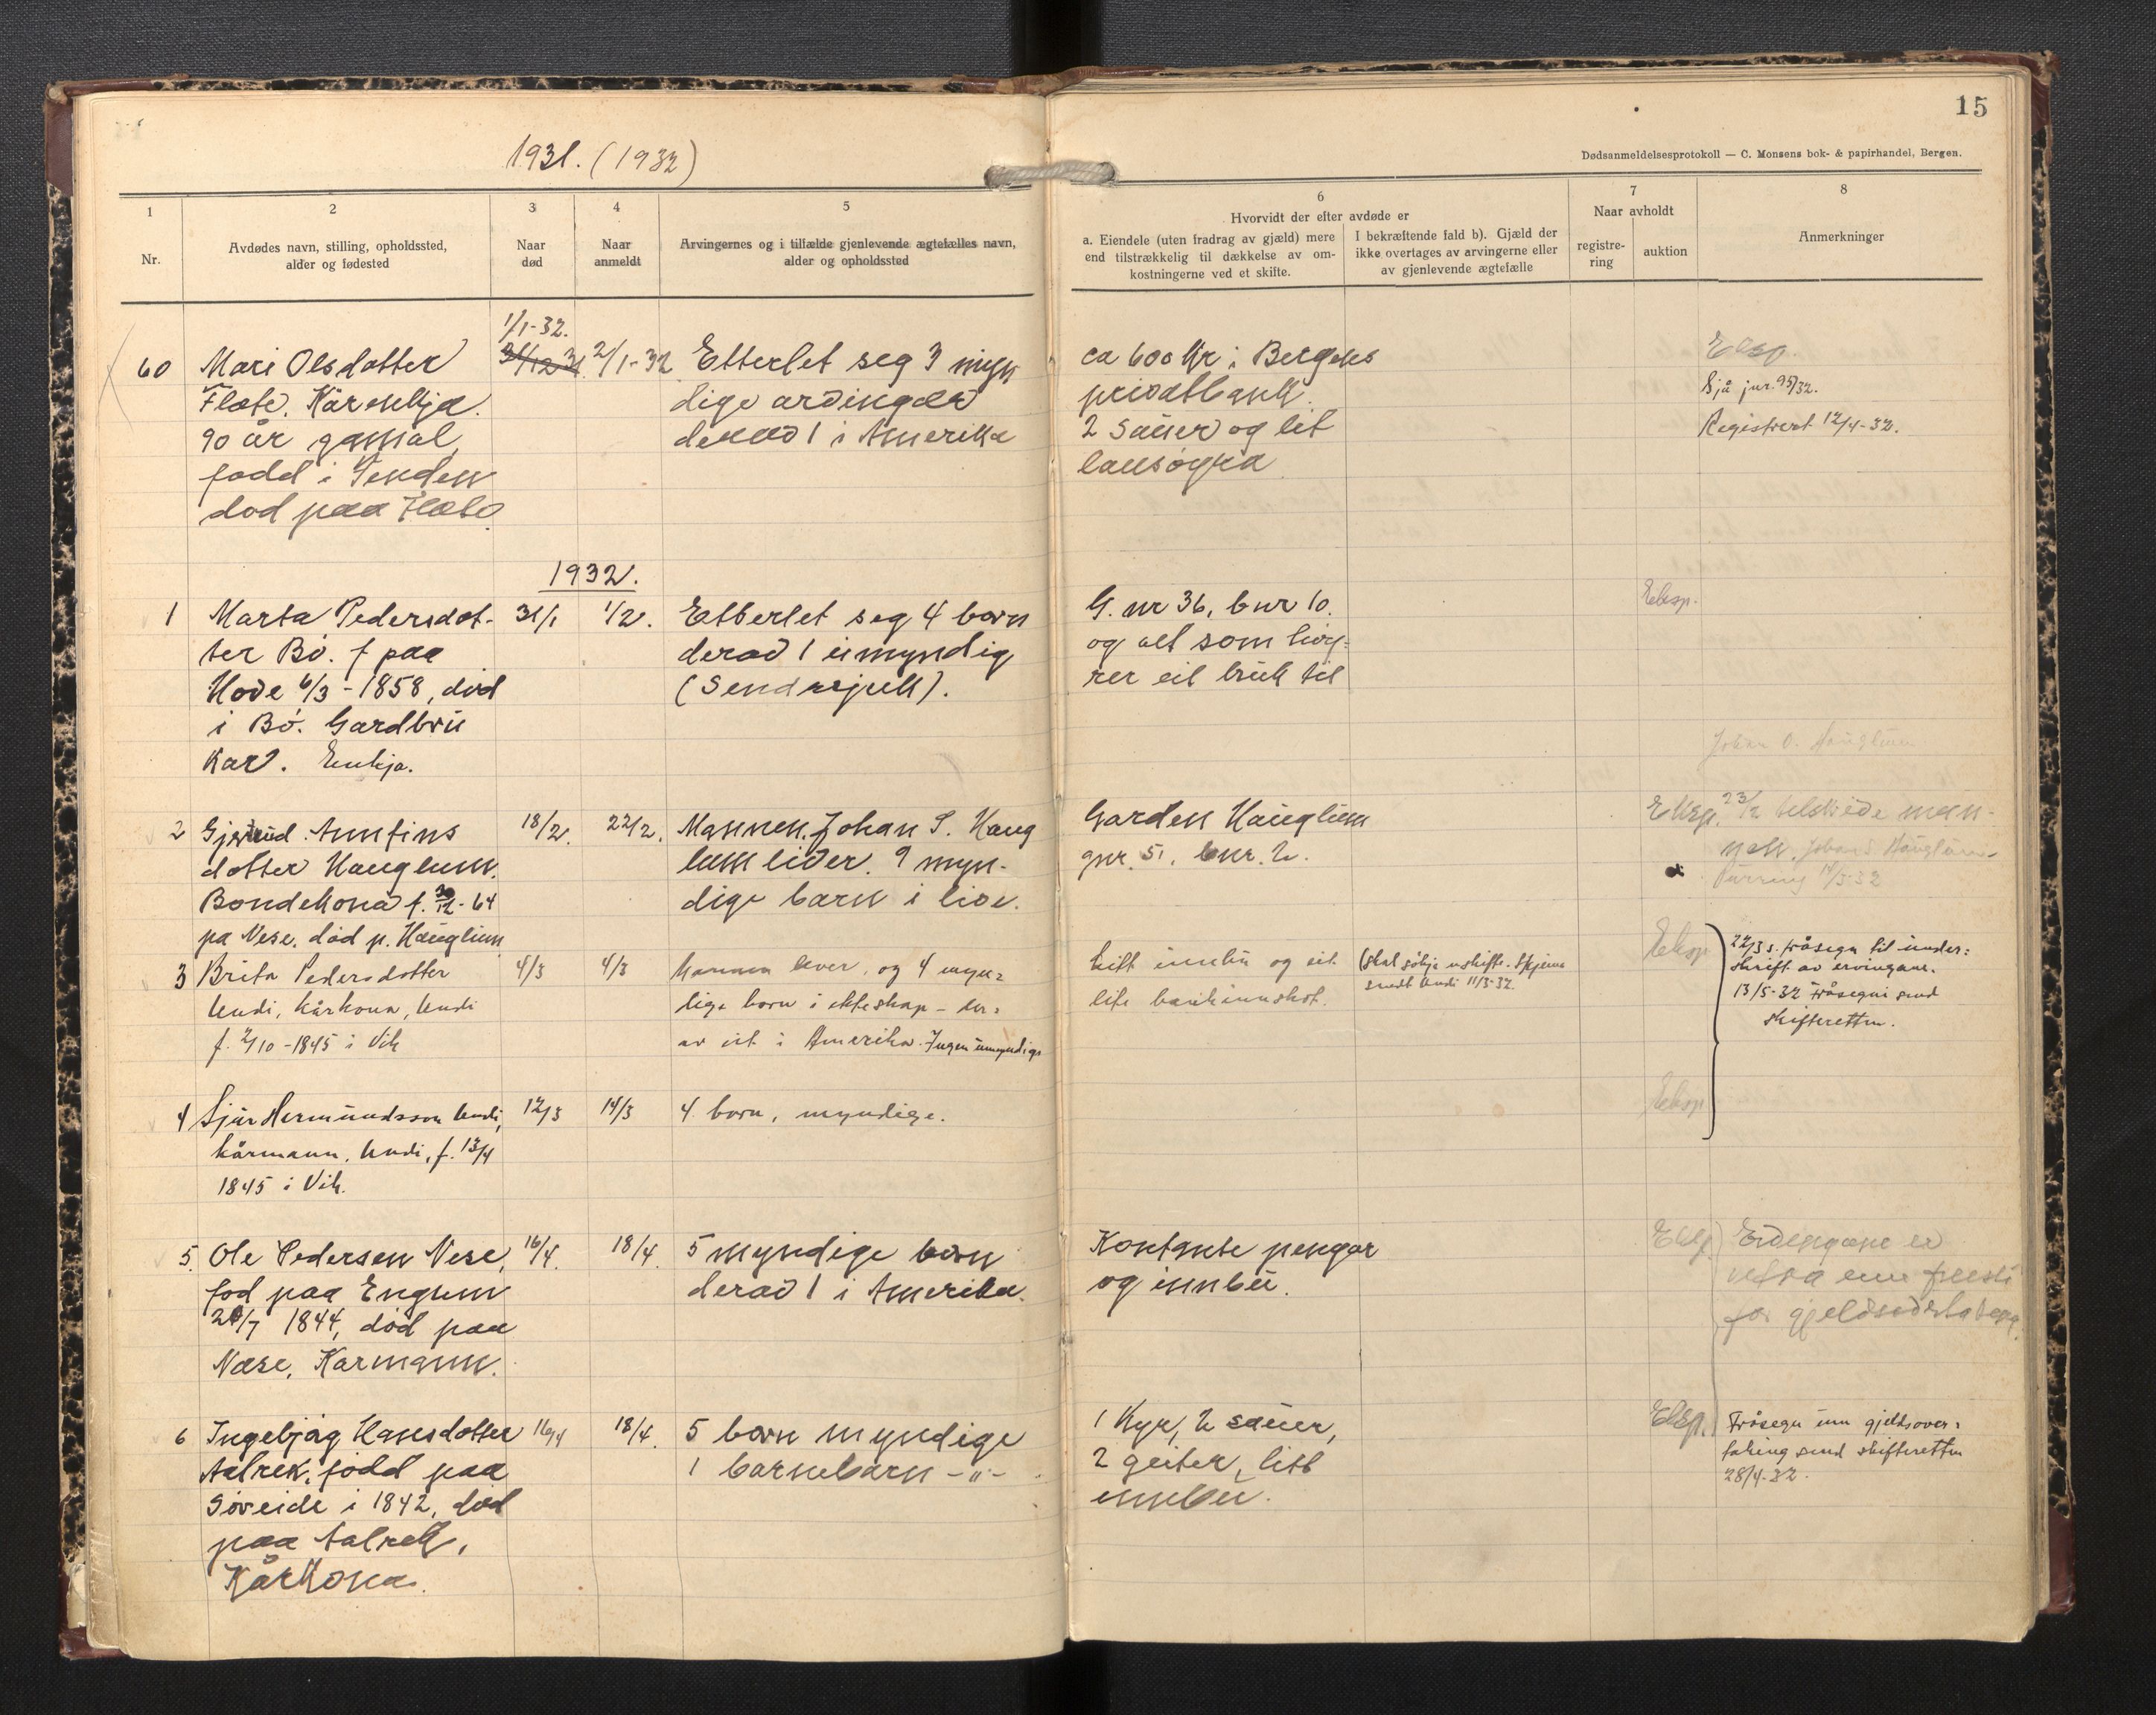 15
1931. (1932)
Dødsanmeldelsesprotokoll — C. Monsens bok- & papirhandel, Bergen.
1
Nr.
2
Avdødes navn, stilling, opholdssted,
alder og fødested
3
Naar
død
4
Naar
anmeldt
5
Arvingernes og i tilfælde gjenlevende ægtefælles navn,
alder og opholdssted
6
Hvorvidt der efter avdøde er
a. Eiendele (uten fradrag av gjæld) mere
end tilstrækkelig til dækkelse av om-
kostningerne ved et skifte.
I bekræftende fald b). Gjæld der
ikke overtages av arvingerne eller
av gjenlevende ægtefælle
7
Naar avholdt
registre-
ring
auktion
8
Anmerkninger
60
Mari Olsdotter
Flote. Kårenkja.
90 år gamal
fødd i
død paa Flote
1/1-32.
31/12 31
2/1-32
Etterlet seg 3 myn
dige arvingar
derav 1 i Amerika
ca 600 kr i Bergens
privatbank.
2 sauer og lit
lausøyra
Eksp.
Sjå jnr. 95/32.
Registrert 12/4-32.
1932.
1
Marta Pedersdot-
ter Bø. f paa
Hove 6/3-1858, død
i Bø. Gardbru
kar. Enkja.
31/1
1/2.
Etterlet seg 4 born
derav 1 umyndig
(Sendesjuk).
G. nr 36, bnr 10.
og alt som høy-
rer eit bruk til
Eksp.
Johan O. Hauglum
2
Gjertrud Arnfins
dotter Hauglum.
Bondekona f. 30/12-64
pa Nese. død p. Hauglum
18/2.
22/2.
Mannen. Johan S. Haug
lum liver. 9 myn-
dige barn i live.
Garden Hauglum
gnr. 51, bnr. 2.
Eksp.
23/2 tilskrive man-
nen, Johan S Hauglum
14/3-32
3
Brita Pedersdotter
Undi, kårkona, Undi
f. 2/10-1845 i Vik
4/3
4/3
Mannen lever, og 4 myn=
dige born i ekteskap - der=
av eit i Amerika. Ingen umyndige
Litt innbu og eit
lite bankinnskot.
(Skal søkja uskifte. Skjema
sendt Undi 11/3-32.
Eksp
22/3 s. fråsegn til under=
skrift av ervingane.
13/5-32 Fråsegni send
skifteretten.
4
Sjur Hermundsson Undi,
kårmann, Undi, f. 13/4
1845 i Vik.
12/3
14/3
4 born, myndige.
Eksp
5.
Ole Pedersen Nese,
fød paa Engum
26/7 1844, død paa
Næse, Karmann.
16/4.
18/4.
5 myndige born
derav 1 i Amerika.
Kontante pengar
og innbu.
Eksp.
Ervingane er
um frest
for gjeldsovertaking.
6
Ingebjørg Hansdotter
Aalrek, fødd paa
Søreide i 1842, død
paa Aalrek,
Kårkona.
16/4
18/4.
5 born myndige
1 barnebarn - " -
1 kyr, 2 sauer,
2 geiter, litt
innbu.
Eksp.
Fråsegn um gjeldsover=
taking send skifteretten
28/4-32.